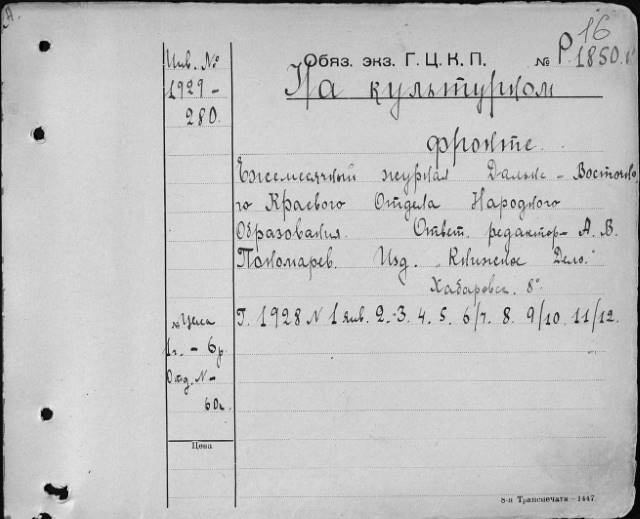 А.
16
Инв. №
1929 –
280.
Обяз. экз. Г. Ц. К. П. № Р. 1850
На культурном
фронте.
Ежемесячный журнал Дальне-Восточно
го Краевого Отдела Народного
Образования. Ответ. редактор – А. В.
Пономарев. Изд. „Книжное Дело."
Хабаровск. 8°
Цена
1 г. – 6 р.
Отд. N –
60 к.
Г. 1928 N 1 янв. 2-3. 4. 5. 6/7. 8. 9/10. 11/12.
Цена
8-я Транспечать—1447.